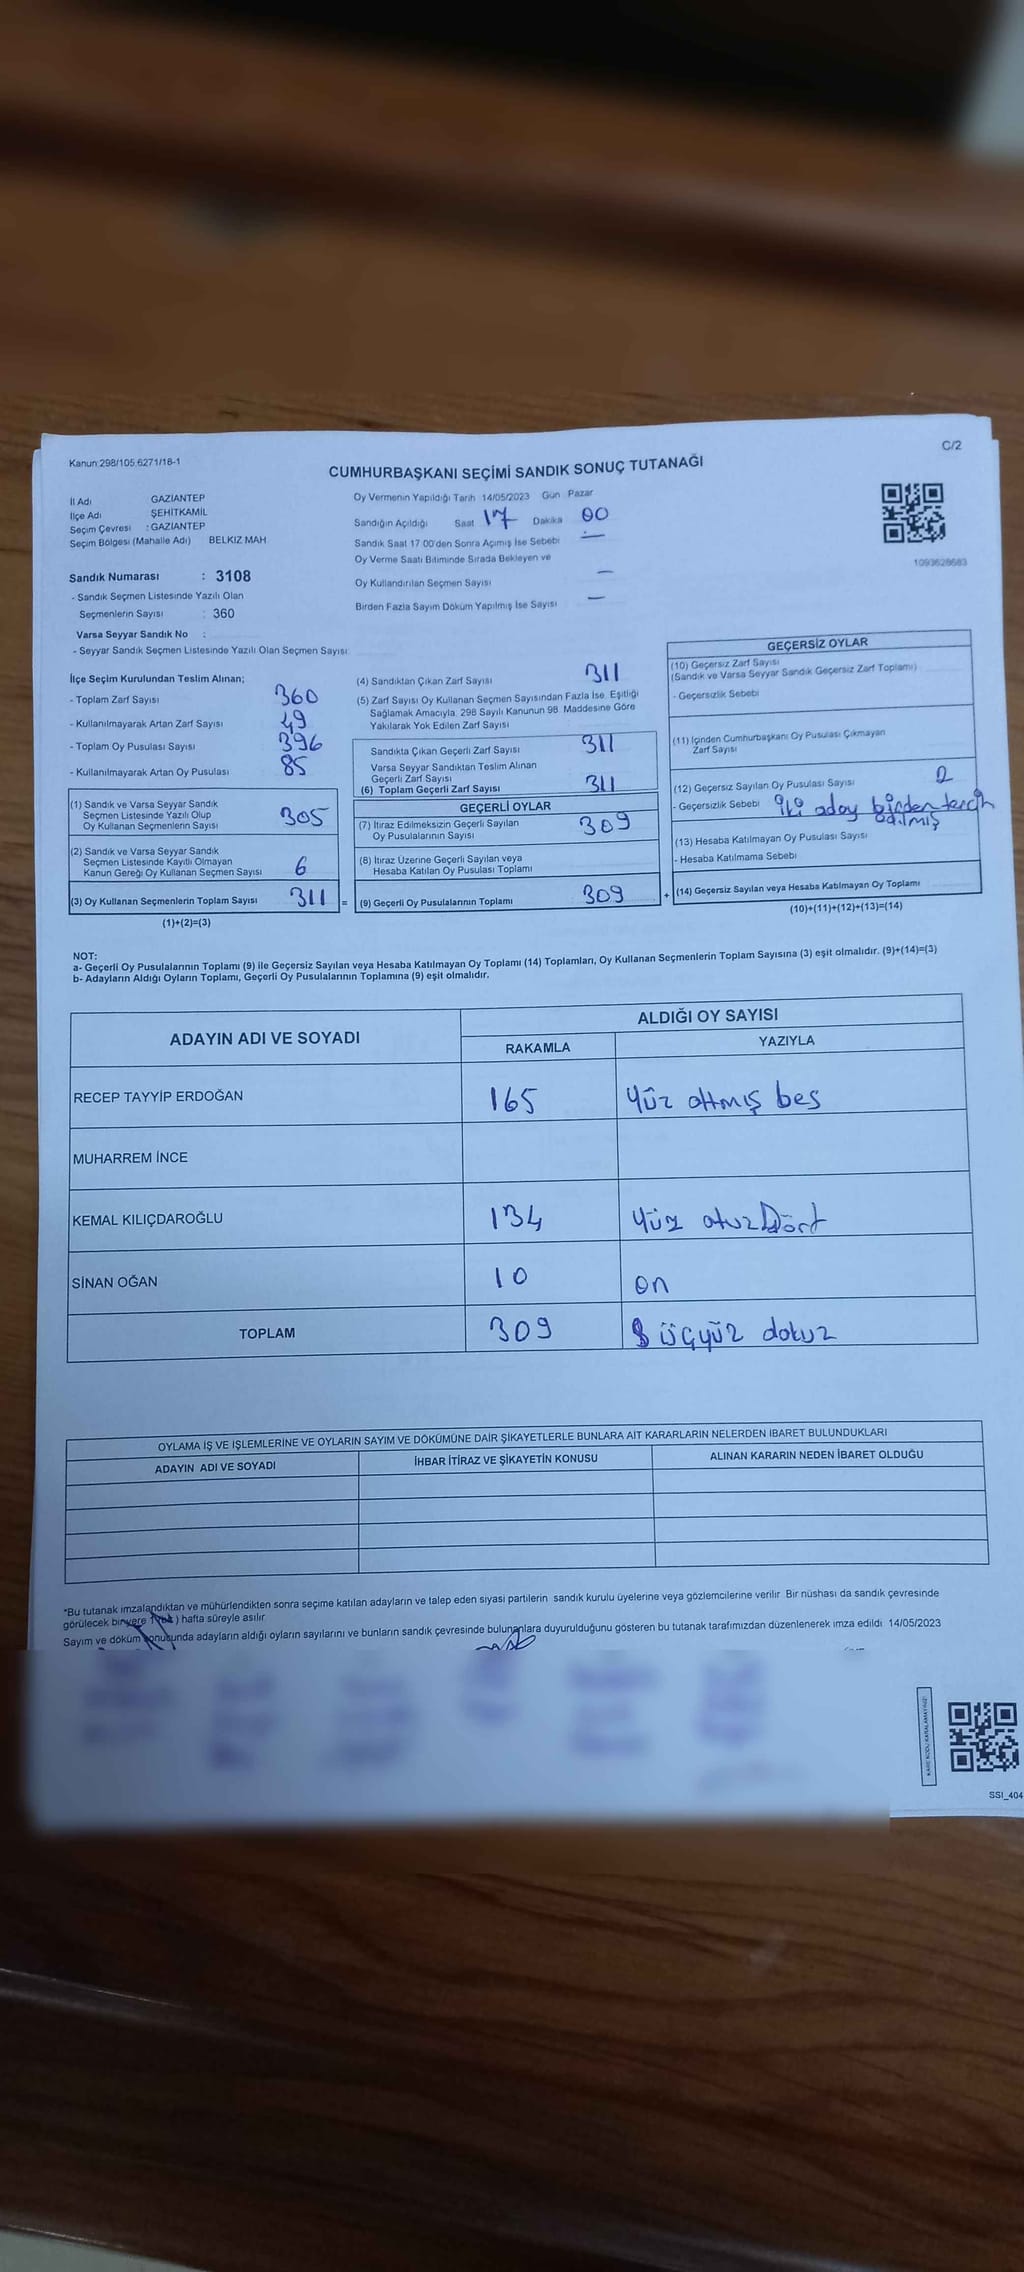 Kanun:298/105,6271/18-1
C/2
CUMHURBAŞKANI SEÇİMİ SANDIK SONUÇ TUTANAĞI
İl Adı GAZİANTEP
İlçe Adı ŞEHİTKAMİL
Seçim Çevresi : GAZİANTEP
Seçim Bölgesi (Mahalle Adı) BELKIZ MAH
Sandık Numarası : 3108
- Sandık Seçmen Listesinde Yazılı Olan
Seçmenlerin Sayısı : 360
Varsa Seyyar Sandık No :
- Seyyar Sandık Seçmen Listesinde Yazılı Olan Seçmen Sayısı:
Oy Vermenin Yapıldığı Tarih 14/05/2023 Gün Pazar
Sandığın Açıldığı Saat 17 Dakika 00
Sandık Saat 17.00'den Sonra Açımış İse Sebebi —
Oy Verme Saati Bitiminde Sırada Bekleyen ve
Oy Kullandırılan Seçmen Sayısı —
Birden Fazla Sayım Döküm Yapılmış İse Sayısı —
1093628683
İlçe Seçim Kurulundan Teslim Alınan;
- Toplam Zarf Sayısı 360
- Kullanılmayarak Artan Zarf Sayısı 49
- Toplam Oy Pusulası Sayısı 396
- Kullanılmayarak Artan Oy Pusulası 85
(1) Sandık ve Varsa Seyyar Sandık
Seçmen Listesinde Yazılı Olup
Oy Kullanan Seçmenlerin Sayısı 305
(2) Sandık ve Varsa Seyyar Sandık
Seçmen Listesinde Kayıtlı Olmayan
Kanun Gereği Oy Kullanan Seçmen Sayısı 6
(3) Oy Kullanan Seçmenlerin Toplam Sayısı 311 =
(1)+(2)=(3)
(4) Sandıktan Çıkan Zarf Sayısı 311
(5) Zarf Sayısı Oy Kullanan Seçmen Sayısından Fazla İse, Eşitliği
Sağlamak Amacıyla, 298 Sayılı Kanunun 98. Maddesine Göre
Yakılarak Yok Edilen Zarf Sayısı
Sandıkta Çıkan Geçerli Zarf Sayısı 311
Varsa Seyyar Sandıktan Teslim Alınan
Geçerli Zarf Sayısı
(6) Toplam Geçerli Zarf Sayısı 311
GEÇERLİ OYLAR
(7) İtiraz Edilmeksizin Geçerli Sayılan
Oy Pusulalarının Sayısı 309
(8) İtiraz Üzerine Geçerli Sayılan veya
Hesaba Katılan Oy Pusulası Toplamı
(9) Geçerli Oy Pusulalarının Toplamı 309 +
GEÇERSİZ OYLAR
(10) Geçersiz Zarf Sayısı
(Sandık ve Varsa Seyyar Sandık Geçersiz Zarf Toplamı)
- Geçersizlik Sebebi
(11) İçinden Cumhurbaşkanı Oy Pusulası Çıkmayan
Zarf Sayısı
(12) Geçersiz Sayılan Oy Pusulası Sayısı 2
- Geçersizlik Sebebi iki aday birden tercih
edilmiş
(13) Hesaba Katılmayan Oy Pusulası Sayısı
- Hesaba Katılmama Sebebi
(14) Geçersiz Sayılan veya Hesaba Katılmayan Oy Toplamı
(10)+(11)+(12)+(13)=(14)
NOT:
a- Geçerli Oy Pusulalarının Toplamı (9) ile Geçersiz Sayılan veya Hesaba Katılmayan Oy Toplamı (14) Toplamları, Oy Kullanan Seçmenlerin Toplam Sayısına (3) eşit olmalıdır. (9)+(14)=(3)
b- Adayların Aldığı Oyların Toplamı, Geçerli Oy Pusulalarının Toplamına (9) eşit olmalıdır.
ADAYIN ADI VE SOYADI ALDIĞI OY SAYISI
RAKAMLA YAZIYLA
RECEP TAYYİP ERDOĞAN 165 Yüz altmış beş
MUHARREM İNCE
KEMAL KILIÇDAROĞLU 134 Yüz otuz Dört
SİNAN OĞAN 10 on
TOPLAM 309 üçyüz dokuz
OYLAMA İŞ VE İŞLEMLERİNE VE OYLARIN SAYIM VE DÖKÜMÜNE DAİR ŞİKAYETLERLE BUNLARA AİT KARARLARIN NELERDEN İBARET BULUNDUKLARI
ADAYIN ADI VE SOYADI İHBAR İTİRAZ VE ŞİKAYETİN KONUSU ALINAN KARARIN NEDEN İBARET OLDUĞU
*Bu tutanak imzalandıktan ve mühürlendikten sonra seçime katılan adayların ve talep eden siyasi partilerin sandık kurulu üyelerine veya gözlemcilerine verilir. Bir nüshası da sandık çevresinde
görülecek bir yere 1 ) hafta süreyle asılır
Sayım ve döküm sonucunda adayların aldığı oyların sayılarını ve bunların sandık çevresinde bulunanlara duyurulduğunu gösteren bu tutanak tarafımızdan düzenlenerek imza edildi 14/05/2023
KARE KODU KARALAMAYINIZ!
SSI_404